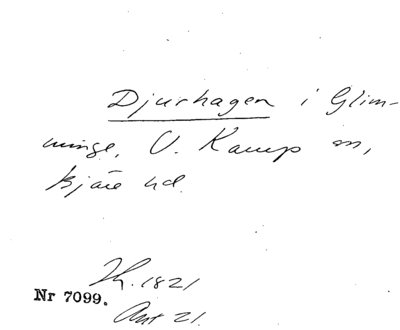 Djurhagen i Glim-
minge, V. Karup sn,
Bjäre hd
Nr 7099.
Ant 21.